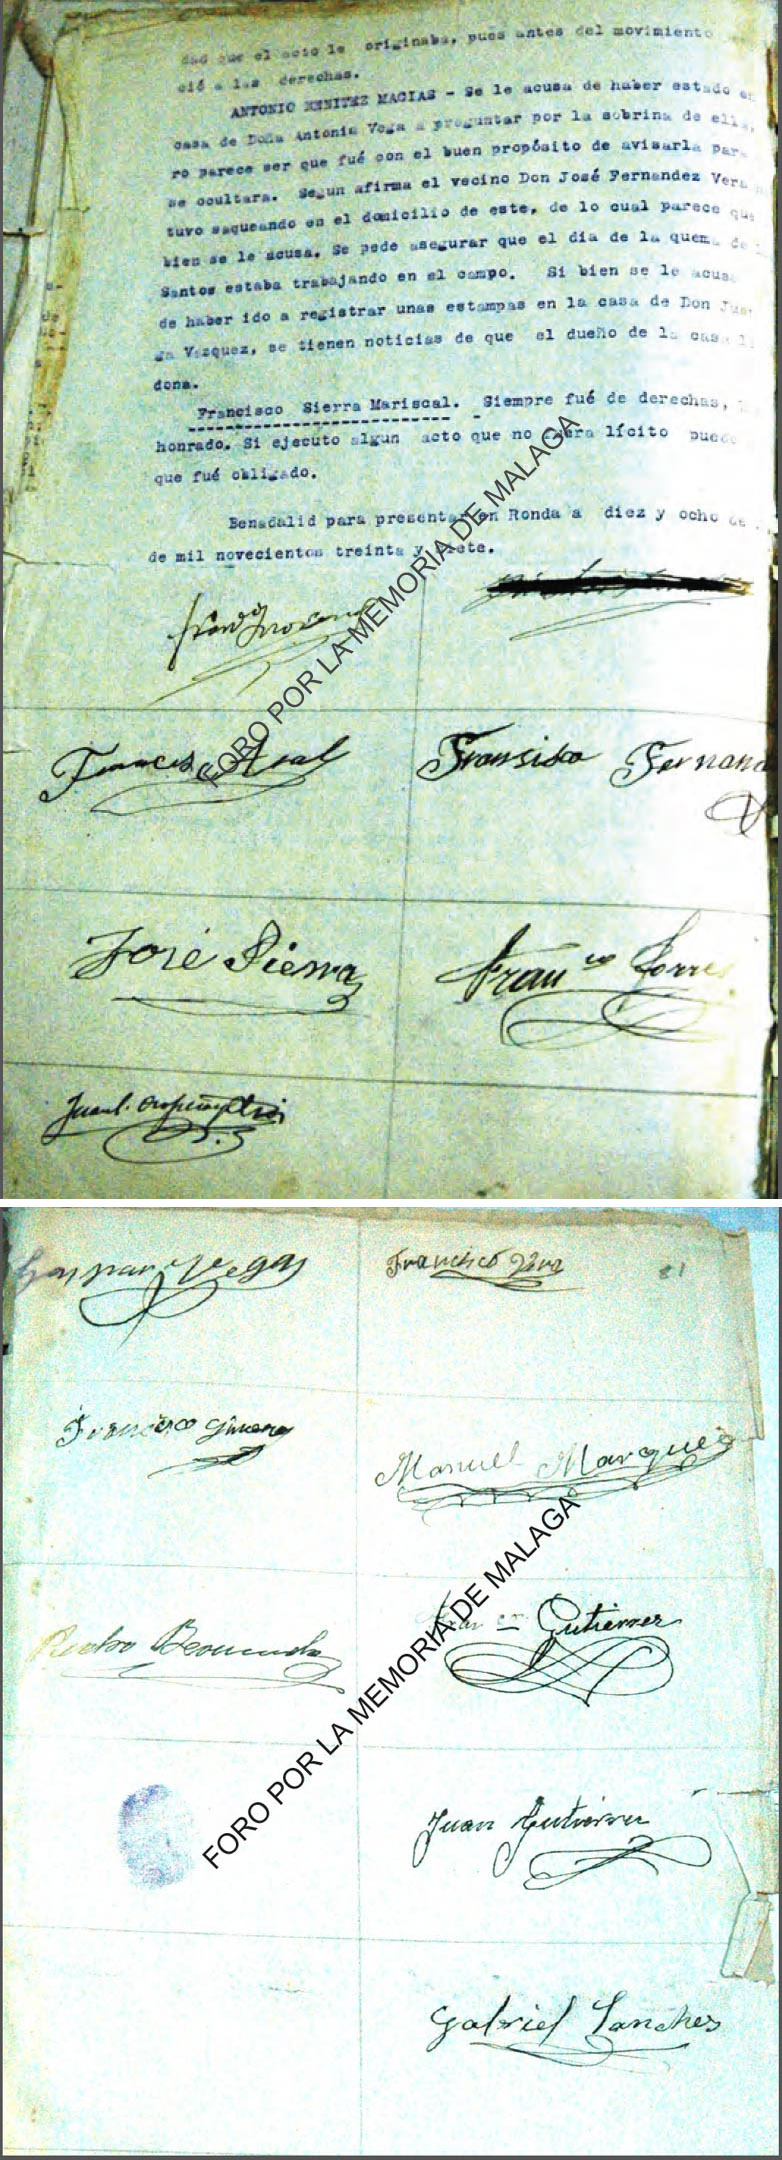 dad que el acto le originaba, pues antes del movimiento
ció a las derechas.
ANTONIO BENITEZ MACIAS - Se le acusa de haber estado en
casa de Doña Antonia Vega a preguntar por la sobrina de ella,
ro parece ser que fué con el buen propósito de avisarla para
se ocultara. Segun afirma el vecino Don José Fernandez Vera
tuvo saqueando en el domicilio de este, de lo cual parece que
bien se le acusa. Se pede asegurar que el dia de la quema de
Santos estaba trabajando en el campo. Si bien se le acusa
de haber ido a registrar unas estampas en la casa de Don Juan
ga Vazquez, se tienen noticias de que el dueño de la casa
dona.
Francisco Sierra Mariscal. Siempre fué de derechas,
honrado. Si ejecuto algun acto que no fuera lícito puede
que fué obligado.
Benadalid para presentar en Ronda a diez y ocho de
de mil novecientos treinta y siete.
FORO POR LA MEMORIA DE MALAGA
Fransisco Fernand
José Sierra
Franco Torres
Gaspar Vegas
Francisco Vera
Francisco Gimenez
Manuel Marquez
Gutierrez
FORO POR LA MEMORIA DE MALAGA
Juan Gutierrez
Gabriel Sanches
81